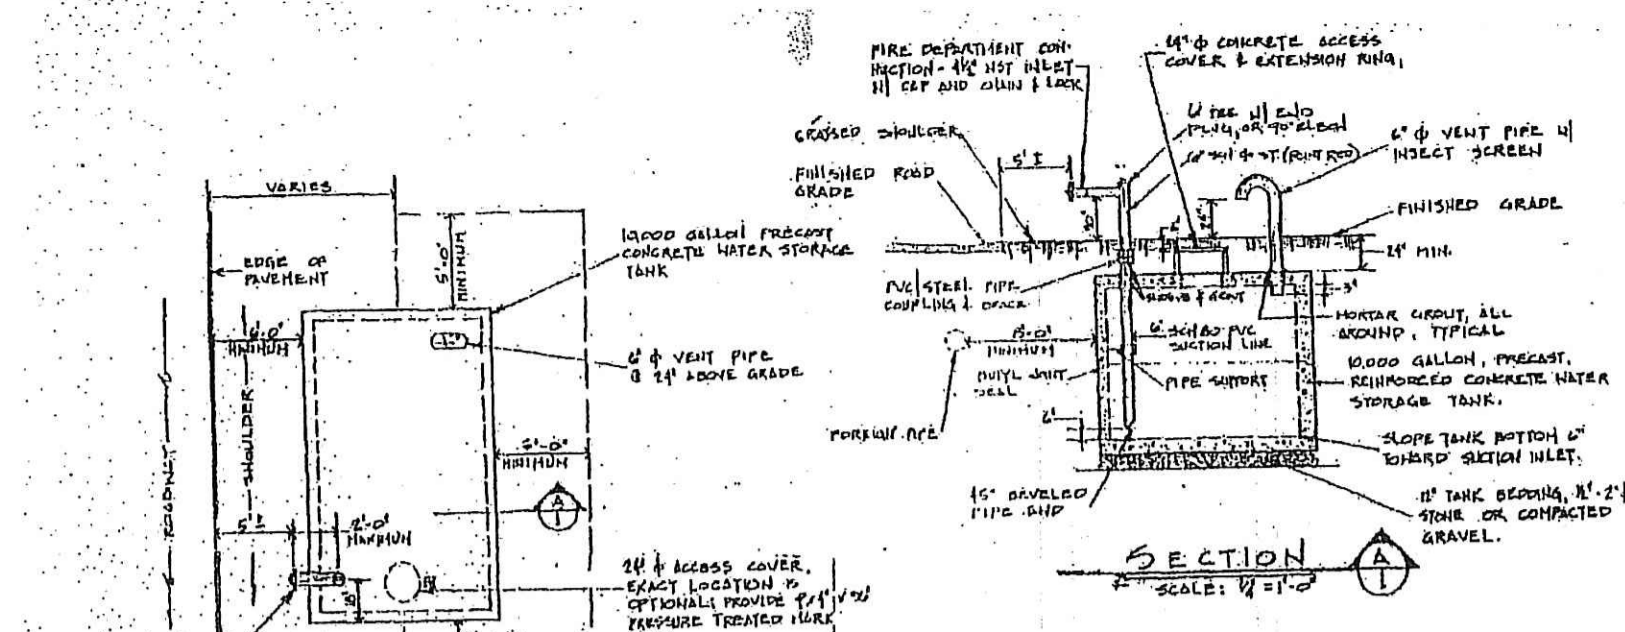 VARIES
EDGE OF
PAVEMENT
6'-0"
MINIMUM
SHOULDER
ROADWAY
5' ±
2'-0"
MAXIMUM
5'-0"
MINIMUM
10,000 GALLON PRECAST
CONCRETE WATER STORAGE
TANK
6" φ VENT PIPE
@ 24" ABOVE GRADE
5'-0"
MINIMUM
A
1
24" φ ACCESS COVER,
EXACT LOCATION IS
OPTIONAL; PROVIDE
PRESSURE TREATED
FIRE DEPARTMENT CON-
NECTION - 4½" NST INLET
W/ CAP AND CHAIN & LOCK
24" φ CONCRETE ACCESS
COVER & EXTENSION RING,
6" TEE W/ END
PLUG, OR 90° ELBOW
6" φ VENT PIPE W/
INSECT SCREEN
GRASSED SHOULDER
5' ±
FINISHED ROAD
GRADE
FINISHED GRADE
24" MIN.
PVC/STEEL PIPE
COUPLING &
3"
MORTAR GROUT, ALL
AROUND, TYPICAL
8'-0"
MINIMUM
6" SCH 80 PVC
SUCTION LINE
BUTYL JOINT
SEAL
PIPE SUPPORT
10,000 GALLON, PRECAST,
REINFORCED CONCRETE WATER
STORAGE TANK.
6"
PIPE
SLOPE TANK BOTTOM 6"
TOWARD SUCTION INLET.
45° BEVELED
PIPE END
12" TANK BEDDING, 1½"-2"
STONE OR COMPACTED
GRAVEL.
SECTION
SCALE: ¼"=1'-0"
A
1